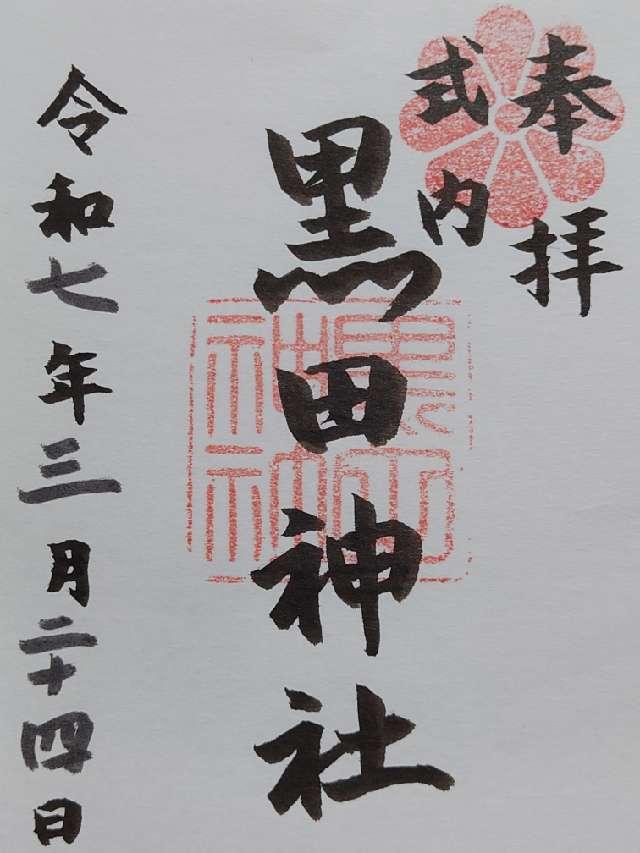 奉拝
式内
黒田神社
令和七年三月二十四日